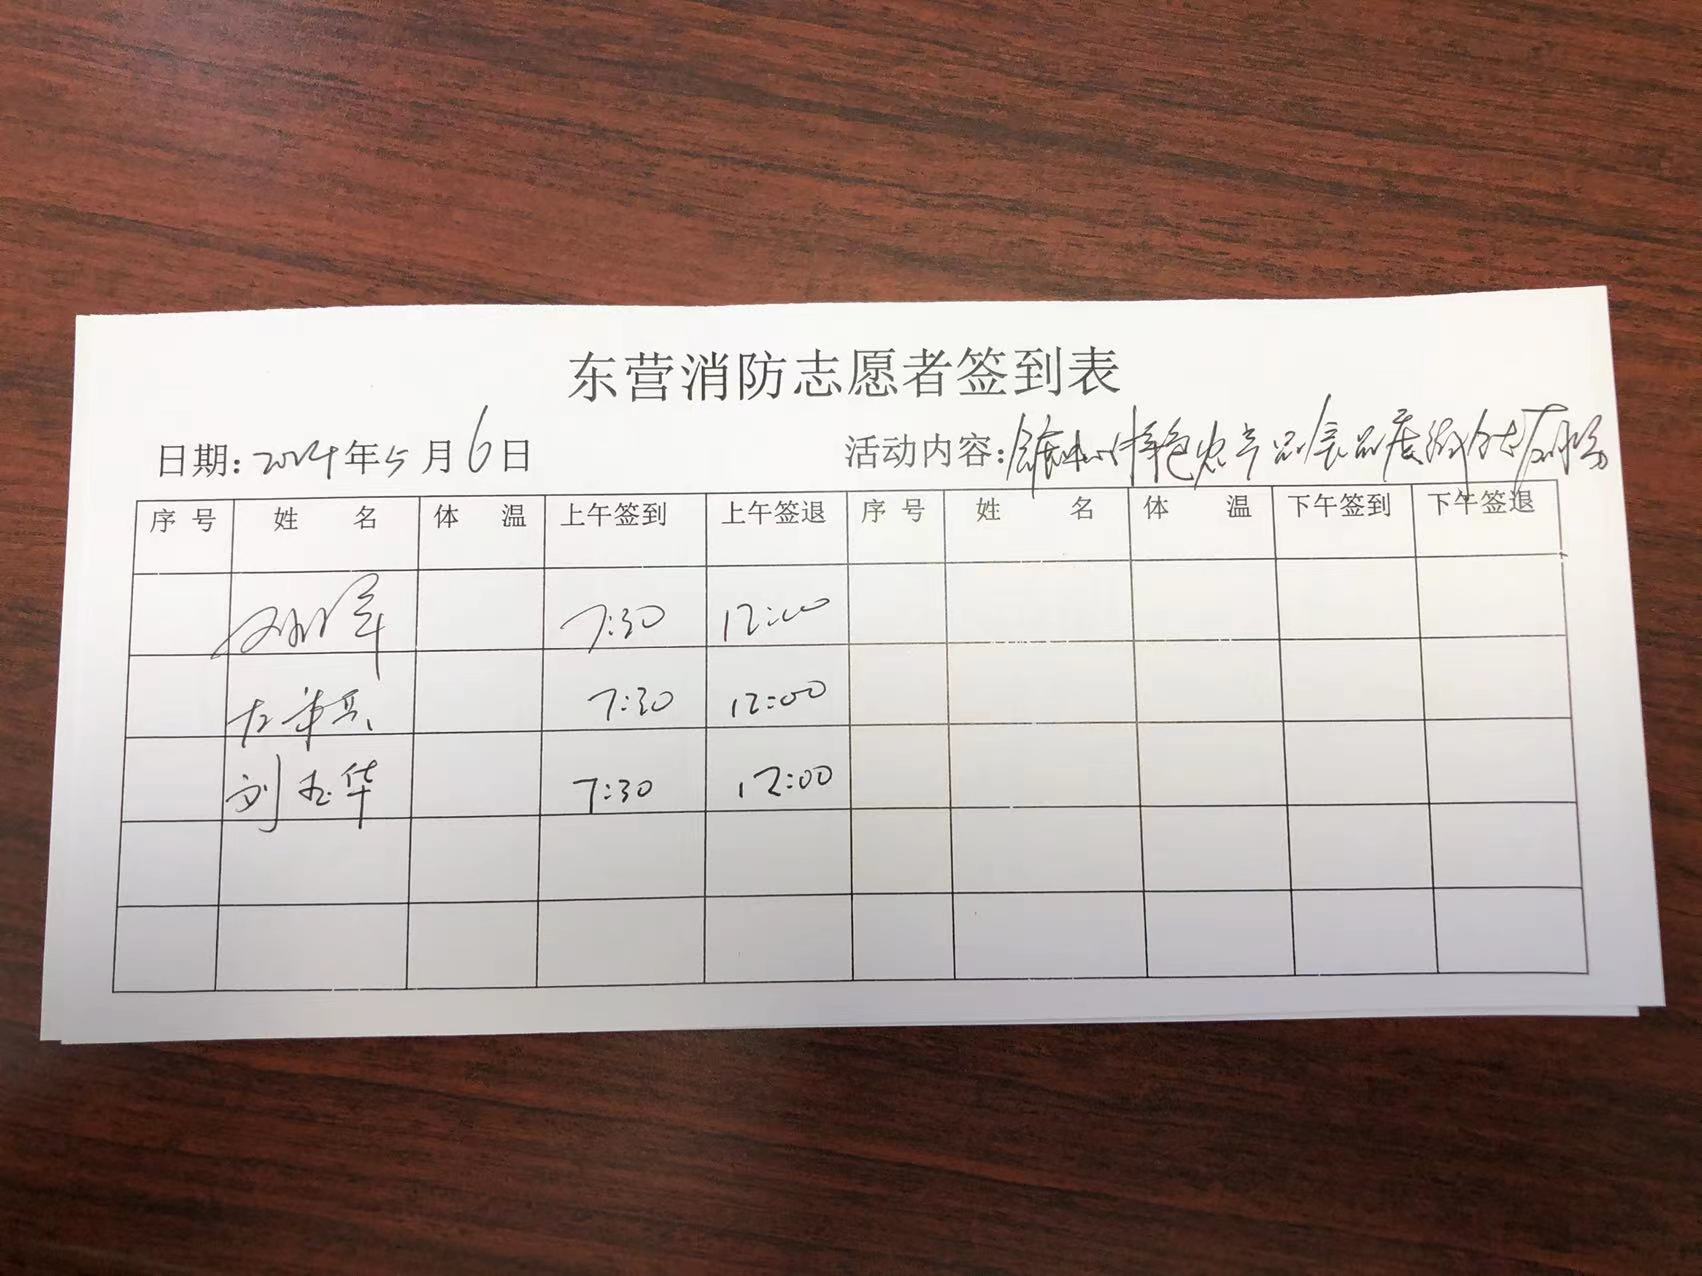 东营消防志愿者签到表
日期:2024年5月6日 活动内容:特色农产品食品展
序号 姓 名 体 温 上午签到 上午签退 序号 姓 名 体 温 下午签到 下午签退
7:30 12:00
7:30 12:00
刘玉华 7:30 12:00